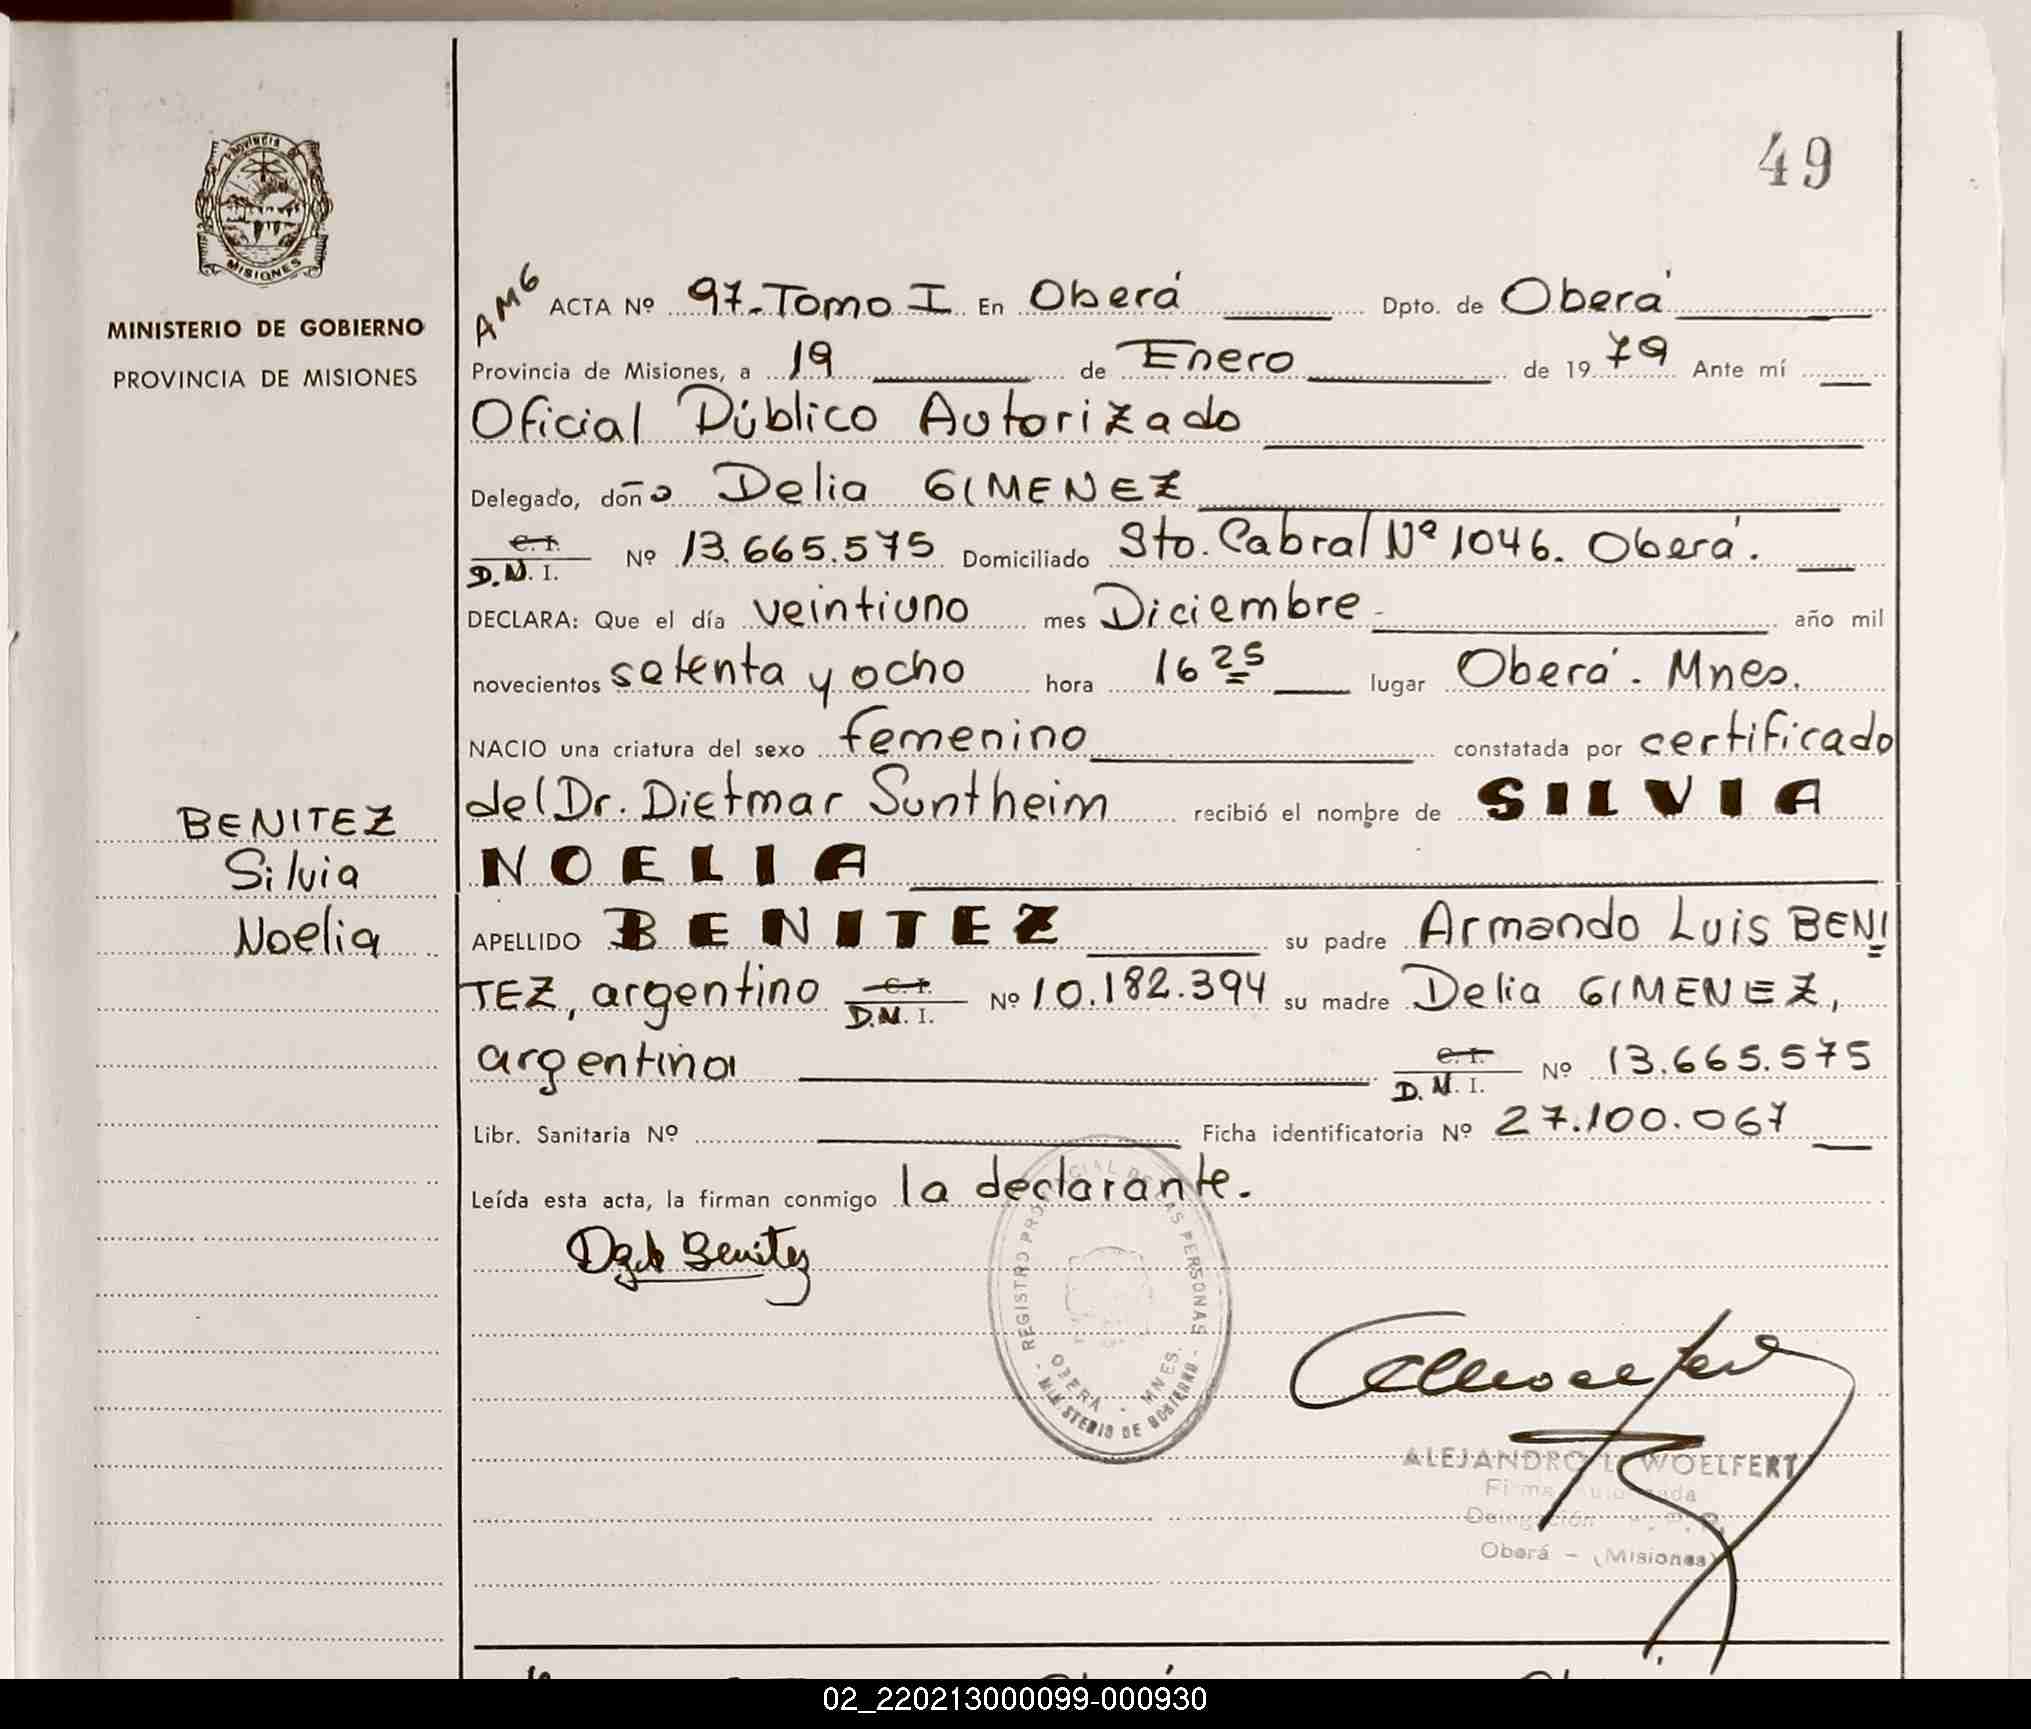 49
PROVINCIA DE
MISIONES
MINISTERIO DE GOBIERNO
PROVINCIA DE MISIONES
BENITEZ
Silvia
Noelia
AMG
ACTA Nº 97.-Tomo I En Oberá Dpto. de Oberá
Provincia de Misiones, a 19 de Enero de 1979 Ante mí
Oficial Público Autorizado
Delegado, doña Delia GIMENEZ
C. I.
D.N.I. Nº 13.665.575 Domiciliado Sto. Cabral Nº 1046. Oberá.
DECLARA: Que el día veintiuno mes Diciembre año mil
novecientos setenta y ocho hora 16 25 lugar Oberá. Mnes.
NACIO una criatura del sexo femenino constatada por certificado
del Dr. Dietmar Suntheim recibió el nombre de SILVIA
NOELIA
APELLIDO BENITEZ su padre Armando Luis BENI
TEZ, argentino C. I. D.N.I. Nº 10.182.394 su madre Delia GIMENEZ,
argentina C. I. D.N.I. Nº 13.665.575
Libr. Sanitaria Nº Ficha identificatoria Nº 27.100.067
Leída esta acta, la firman conmigo la declarante.
Benitez
REGISTRO PROVINCIAL DE LAS PERSONAS
OBERA - MNES.
MINISTERIO DE GOBIERNO
ALEJANDRO WOELFERT
Firma Autorizada
Delegación
Oberá - (Misiones)
02_220213000099-000930